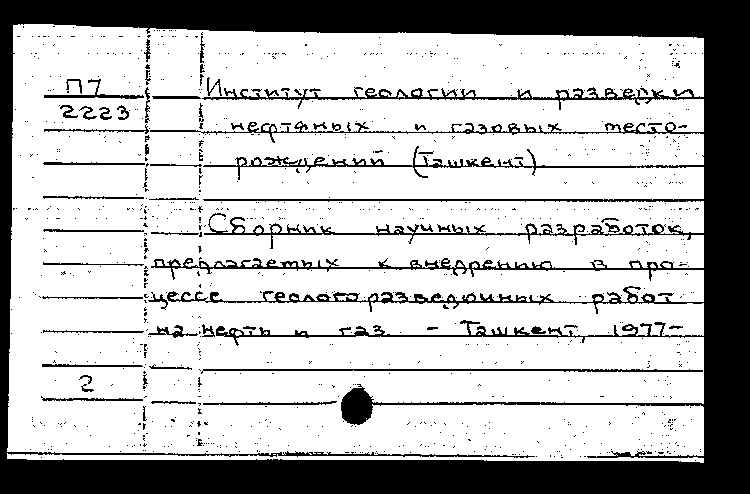 П7 Институт геологии и разведки
2223 нефтяных и газовых место-
рождений (Ташкент).
Сборник научных разработок,
предлагаемых к внедрению в про-
цессе геологоразведочных работ
на нефть и газ. - Ташкент, 1977-
2